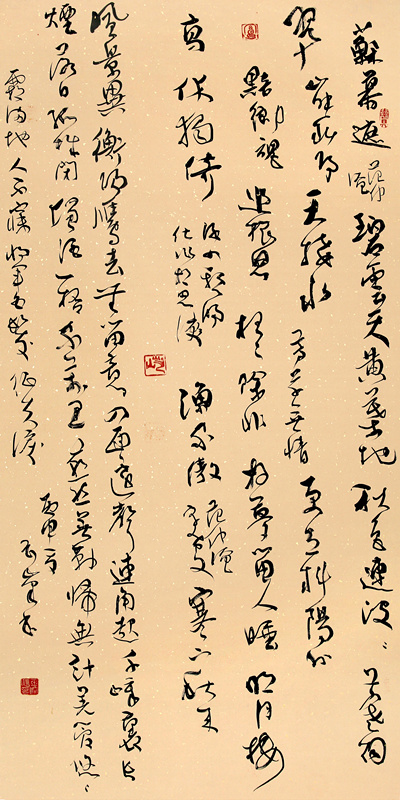 蘇幕遮 范仲淹 碧雲天黄葉地 秋色連波〻上寒煙
翠 山映斜陽天接水 芳草無情 更在斜陽外
黯鄉魂 追旅思 夜〻除非 好夢留人睡 明月樓
高休獨倚 酒入愁腸 化作相思淚 漁家傲 范仲淹 塞下秋來
風景異衡陽雁去無留意四面邊聲連角起千嶂裏長
煙落日孤城閉濁酒一杯家萬里燕然未勒歸無計羌管悠〻
霜滿地人不寐將軍白髮征夫淚
丙申